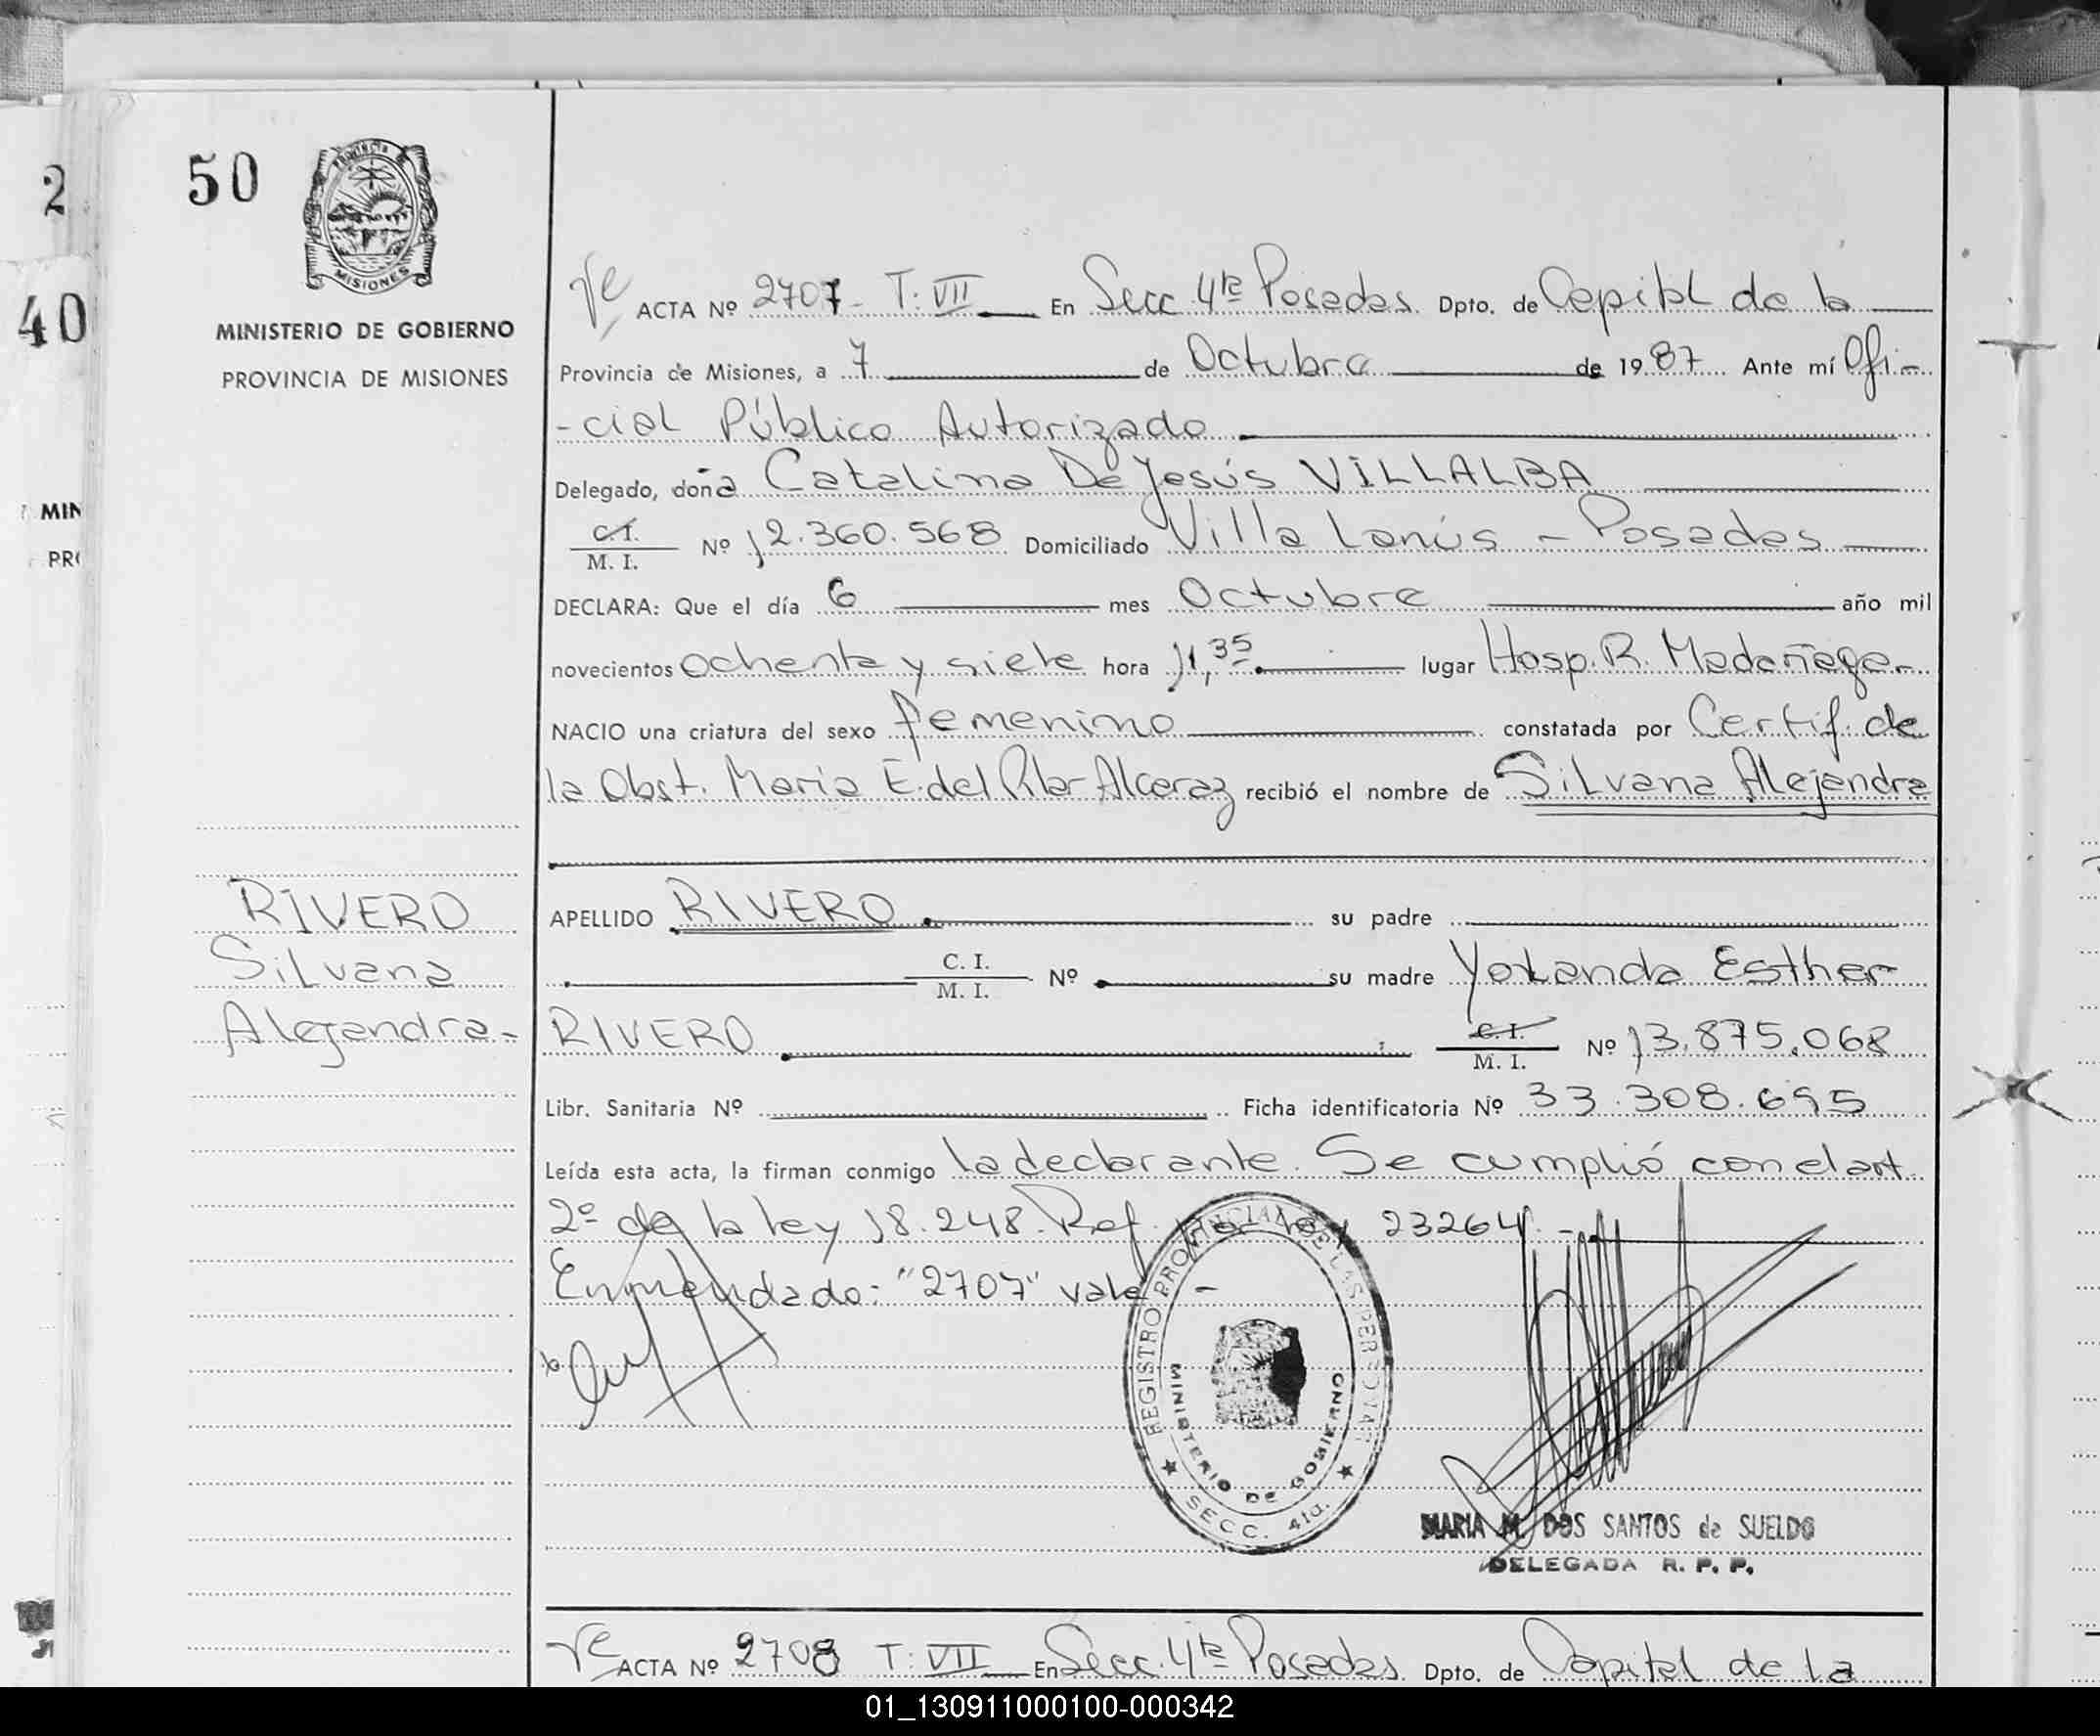 2
40
MIN
PRO
50
PROVINCIA DE
MISIONES
MINISTERIO DE GOBIERNO
PROVINCIA DE MISIONES
ACTA Nº 2707 - T: VII En Secc 4ta Posadas. Dpto. de Capital de la
Provincia de Misiones, a 7 de Octubre de 1987 Ante mí Ofi-
-cial Público Autorizado
Delegado, doña Catalina De Jesús VILLALBA
C.I.
M. I. Nº 12.360.568 Domiciliado Villa Lanús - Posadas
DECLARA: Que el día 6 mes Octubre año mil
novecientos ochenta y siete hora 11,35 lugar Hosp. R. Madariaga.
NACIO una criatura del sexo femenino constatada por Certif. de
la Obst. María E. del Pilar Alcaraz recibió el nombre de Silvana Alejandra
RIVERO
Silvana
Alejandra-
APELLIDO RIVERO su padre
C. I.
M. I. Nº su madre Yolanda Esther
RIVERO C. I.
M. I. Nº 13.875.068
Libr. Sanitaria Nº Ficha identificatoria Nº 33.308.695
Leída esta acta, la firman conmigo la declarante. Se cumplió con el art.
2º de la ley 18.248. Ref. por ley 23264. -
Enmendado: "2707" vale -
REGISTRO PROVINCIAL DE LAS PERSONAS
MINISTERIO DE GOBIERNO
SECC. 4ta.
MARIA M. DOS SANTOS de SUELDO
DELEGADA R. P. P.
ACTA Nº 2708 T: VII En Secc. 4ta Posadas. Dpto. de Capital de la
01_130911000100-000342